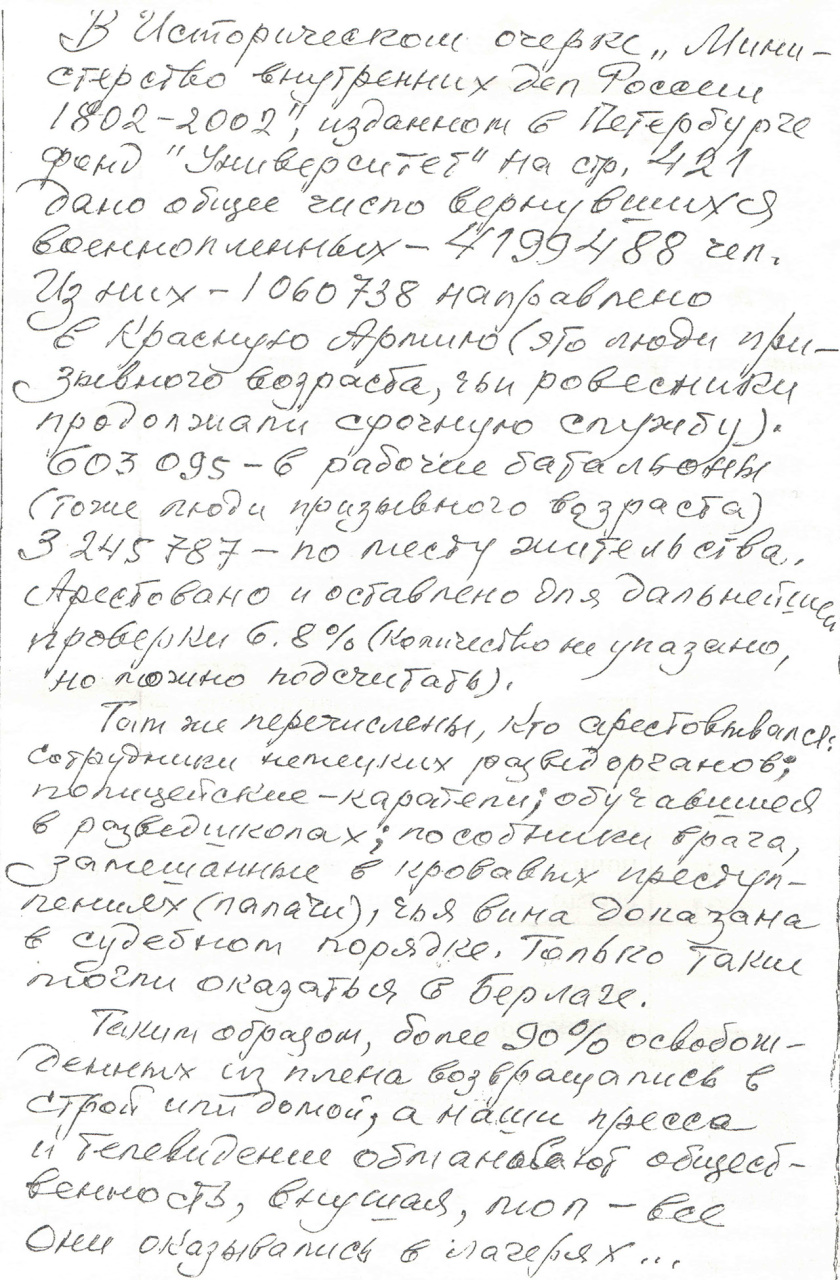 В Историческом очерке „Мини-
стерство внутренних дел России
1802-2002", изданном в Петербурге
фонд "Университет" на стр. 421
дано общее число вернувшихся
военнопленных - 4199488 чел.
Из них - 1060738 направлено
в Красную Армию (это люди при-
зывного возраста, чьи ровесники
продолжали срочную службу).
603 095 - в рабочие батальоны
(тоже люди призывного возраста)
3 245 787 - по месту жительства.
Арестовано и оставлено для дальнейшей
проверки 6.8% (количество не указано,
но можно подсчитать).
Там же перечислены, кто арестовывался:
сотрудники немецких разведорганов;
полицейские-каратели; обучавшиеся
в разведшколах; пособники врага,
замешанные в кровавых преступ-
лениях (палачи), чья вина доказана
в судебном порядке. Только такие
могли оказаться в Берлаге.
Таким образом, более 90% освобож-
денных из плена возвращались в
строй или домой, а наши пресса
и телевидение обманывают общест-
венность, внушая, мол - все
они оказывались в лагерях...